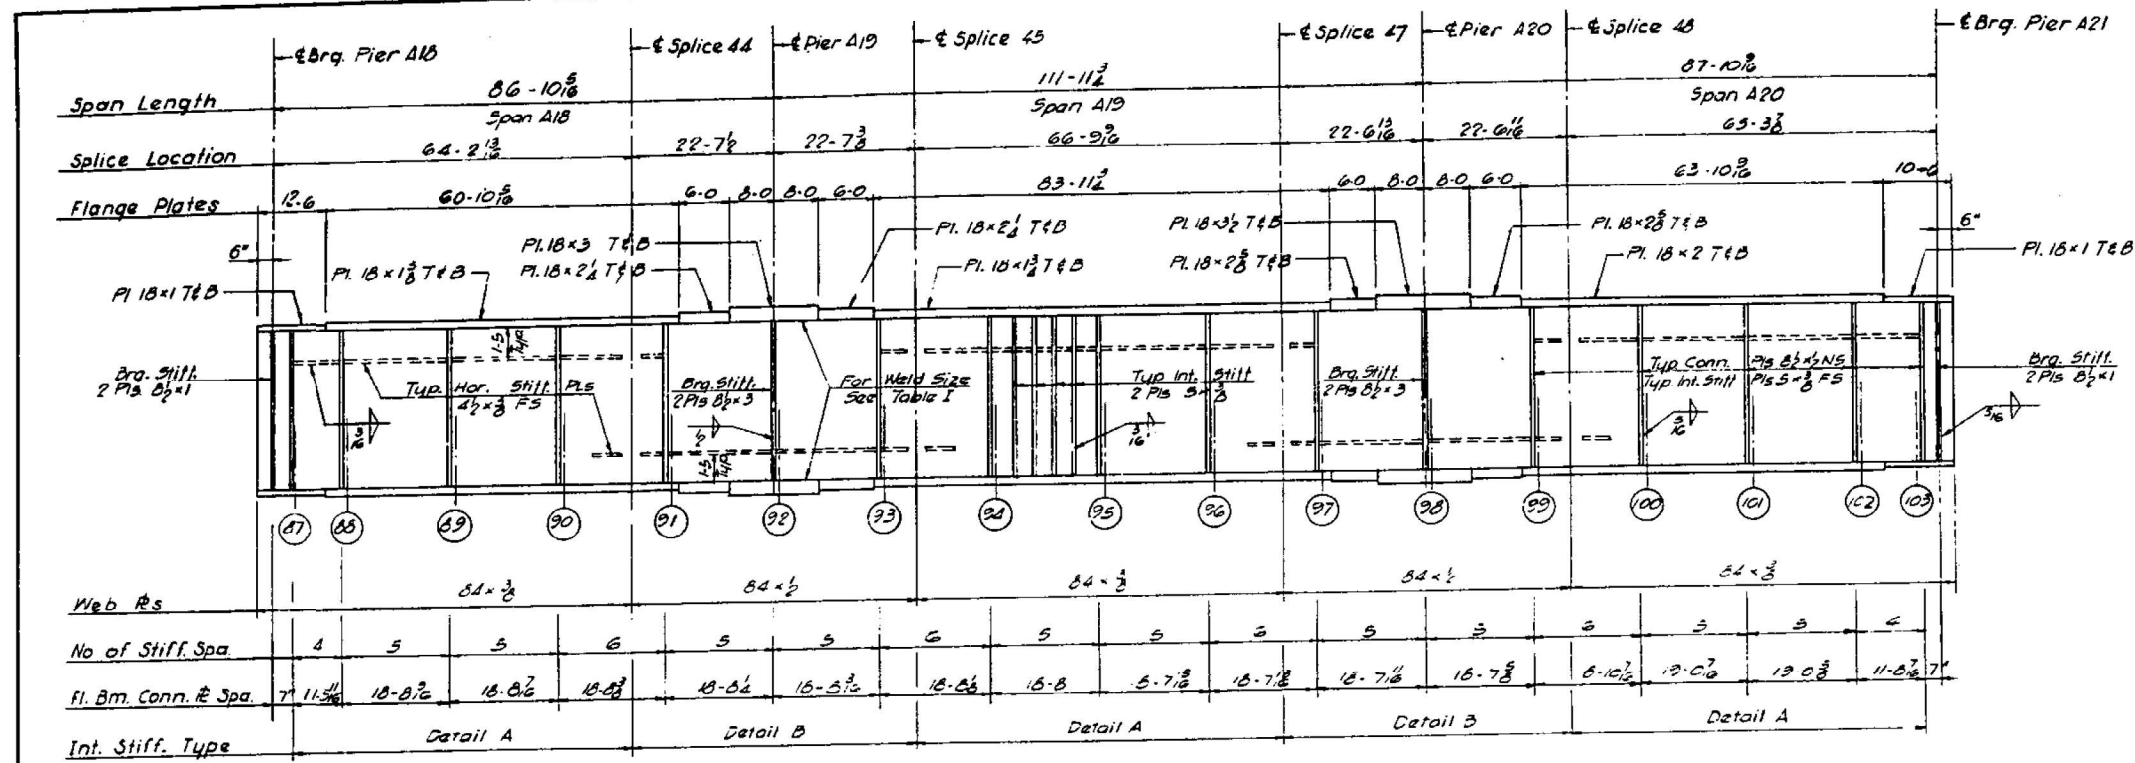 ℄ Brg. Pier A18
℄ Splice 44
℄ Pier A19
℄ Splice 45
℄ Splice 47
℄ Pier A20
℄ Splice 48
℄ Brg. Pier A21
Span Length 86-10 5/16 111-11 3/4 87-10 9/16
Span A18 Span A19 Span A20
Splice Location 64-2 13/16 22-7 1/2 22-7 3/8 66-9 9/16 22-6 13/16 22-6 11/16 65-3 7/8
Flange Plates 12-6 60-10 5/16 6-0 8-0 8-0 6-0 83-11 3/4 6-0 8-0 8-0 6-0 63-10 9/16 10-6
6"
Pl. 18×1 T&B
Pl. 18×1 3/8 T&B
Pl. 18×3 T&B
Pl. 18×2 1/4 T&B
Pl. 18×2 1/4 T&B
Pl. 18×1 3/4 T&B
Pl. 18×3 1/2 T&B
Pl. 18×2 5/8 T&B
Pl. 18×2 5/8 T&B
Pl. 18×2 T&B
6"
Pl. 18×1 T&B
Brg. Stiff.
2 Pls 8 1/2×1
1-5
Typ.
Typ. Hor. Stiff. Pls
4 1/2×3/8 FS
5/16
Brg. Stiff.
2 Pls 8 1/2×3
1/2
1-5
Typ.
For Weld Size
See Table I
Typ. Int. Stiff
2 Pls 5×3/8
3/16
Brg. Stiff.
2 Pls 8 1/2×3
Typ. Conn. Pls 8 1/2×1/2 NS,
Typ. Int. Stiff Pls 5×3/8 FS
3/16
Brg. Stiff.
2 Pls 8 1/2×1
5/16
87 88 89 90 91 92 93 94 95 96 97 98 99 100 101 102 103
Web ℞s 84×3/8 84×1/2 84×3/8 84×1/2 84×3/8
No of Stiff. Spa. 4 5 5 6 5 5 6 5 5 6 5 5 6 5 5 4
Fl. Bm. Conn. ℞ Spa. 7" 11-5 11/16 18-8 9/16 18-8 7/16 18-8 3/8 18-8 1/4 18-8 3/16 18-8 1/8 18-8 18-7 11/16 18-7 5/8 19-0 7/16 19-0 3/8 11-8 7/16 7"
Int. Stiff. Type Detail A Detail B Detail A Detail B Detail A